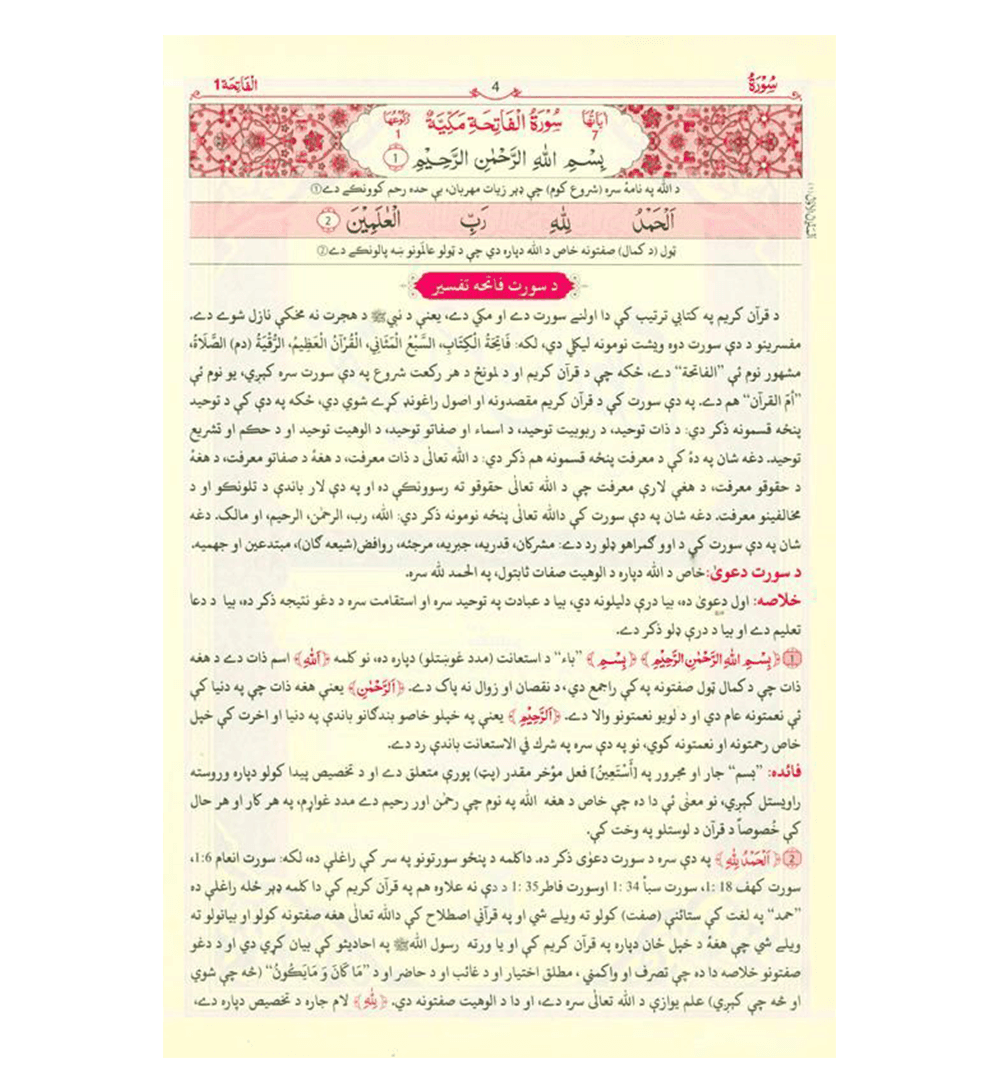 سُوْرَةُ
4
الْفَاتِحَة 1
اٰيَاتُهَا 7
سُوْرَةُ الْفَاتِحَةِ مَكِّيَّةٌ
رُكُوْعُهَا 1
بِسْمِ اللهِ الرَّحْمٰنِ الرَّحِيْمِ ﴿1﴾
د الله په نامۀ سره (شروع کوم) چې ډېر زيات مهربان، بې حده رحم کوونکے دے①
اَلْحَمْدُ لِلّٰهِ رَبِّ الْعٰلَمِيْنَ ﴿2﴾
ټول (د کمال) صفتونه خاص د الله دپاره دي چې د ټولو عالمونو ښه پالونکے دے②
د سورت فاتحه تفسير
د قرآن کريم په کتابي ترتيب کې دا اولنے سورت دے او مکي دے، يعنې د نبيﷺ د هجرت نه مخکې نازل شوے دے.
مفسرينو د دې سورت دوه ويشت نومونه ليکلي دي، لکه: فَاتِحَةُ الْكِتَابِ، السَّبْعُ الْمَثَانِي، الْقُرْآنُ الْعَظِيْمُ، الرُّقْيَةُ (دم) الصَّلَاةُ،
مشهور نوم ئې ”الفاتحة“ دے، ځکه چې د قرآن کريم او د لمونځ د هر رکعت شروع په دې سورت سره کېږي، يو نوم ئې
”أمّ القرآن“ هم دے. په دې سورت کې د قرآن کريم مقصدونه او اصول راغونډ کړے شوي دي، ځکه په دې کې د توحيد
پنځه قسمونه ذکر دي: د ذات توحيد، د ربوبيت توحيد، د اسماء او صفاتو توحيد، د الوهيت توحيد او د حکم او تشريع
توحيد. دغه شان په دۀ کې د معرفت پنځه قسمونه هم ذکر دي: د الله تعالٰی د ذات معرفت، د هغۀ د صفاتو معرفت، د هغۀ
د حقوقو معرفت، د هغې لارې معرفت چې د الله تعالٰی حقوقو ته رسوونکې ده او په دې لار باندې د تلونکو او د
مخالفينو معرفت. دغه شان په دې سورت کې دالله تعالٰی پنځه نومونه ذکر دي: الله، رب، الرحمٰن، الرحيم، او مالک. دغه
شان په دې سورت کې د اوو ګمراهو ډلو رد دے: مشرکان، قدريه، جبريه، مرجئه، روافض(شيعه ګان)، مبتدعين او جهميه.
د سورت دعویٰ: خاص د الله دپاره د الوهيت صفات ثابتول، په الحمد لله سره.
خلاصه: اول دعویٰ ده، بيا درې دليلونه دي، بيا د عبادت په توحيد سره او استقامت سره د دغو نتيجه ذکر ده، بيا د دعا
تعليم دے او بيا د درې ډلو ذکر دے.
﴿1﴾ ﴿بِسْمِ اللهِ الرَّحْمٰنِ الرَّحِيْمِ﴾ ﴿بِسْمِ﴾ ”باء“ د استعانت (مدد غوښتلو) دپاره ده، نو کلمه ﴿اَللهِ﴾ اسم ذات دے د هغه
ذات چې د کمال ټول صفتونه په کې راجمع دي، د نقصان او زوال نه پاک دے. ﴿اَلرَّحْمٰنِ﴾ يعنې هغه ذات چې په دنيا کې
ئې نعمتونه عام دي او د لويو نعمتونو والا دے. ﴿اَلرَّحِيْمِ﴾ يعنې په خپلو خاصو بندګانو باندې په دنيا او اخرت کې خپل
خاص رحمتونه او نعمتونه کوي، نو په دې سره په شرك في الاستعانت باندې رد دے.
فائده: ”بسم“ جار او مجرور په [أَسْتَعِينُ] فعل مؤخر مقدر (پټ) پورې متعلق دے او د تخصيص پيدا کولو دپاره وروسته
راوېستل کېږي، نو معنٰی ئې دا ده چې خاص د هغه الله په نوم چې رحمٰن اور رحيم دے مدد غواړم، په هر کار او هر حال
کې خُصوصاً د قرآن د لوستلو په وخت کې.
﴿2﴾ ﴿اَلْحَمْدُ لِلّٰهِ﴾ په دې سره د سورت دعوٰی ذکر ده. داکلمه د پنځو سورتونو په سر کې راغلې ده، لکه: سورت انعام 1:6،
سورت کهف 18 :1، سورت سبأ 34 :1 اوسورت فاطر35 :1 د دې نه علاوه هم په قرآن کريم کې دا کلمه ډېر ځله راغلې ده
”حمد“ په لغت کې ستائنې (صفت) کولو ته ويلے شي او په قرآني اصطلاح کې دالله تعالٰی هغه صفتونه کولو او بيانولو ته
ويلے شي چې هغۀ د خپل ځان دپاره په قرآن کريم کې او يا ورته رسول اللهﷺ په احاديثو کې بيان کړي دي او د دغو
صفتونو خلاصه دا ده چې تصرف او واکمني ، مطلق اختيار او د غائب او د حاضر او د ”مَا كَانَ وَ مَايَكُونُ“ (څه چې شوي
او څه چې کېږي) علم يوازې د الله تعالٰی سره دے، او دا د الوهيت صفتونه دي. ﴿لِلّٰهِ﴾ لام جاره د تخصيص دپاره دے،